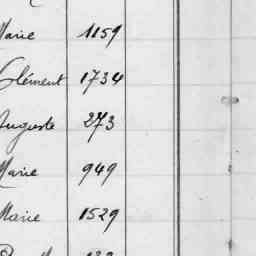 Marie 1159
Clément 1734
Auguste 273
Marie 949
Marie 1529